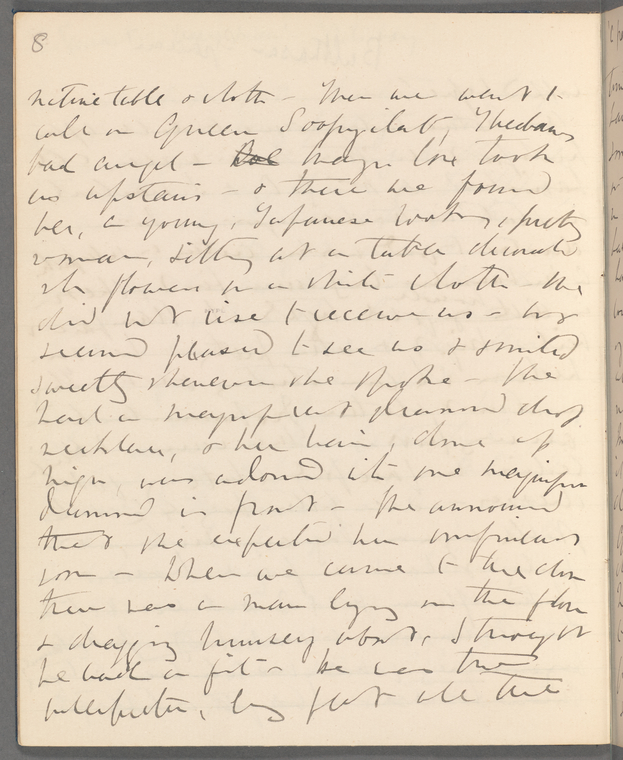 8
table & cloth – Then we went to
call on Queen Soopyilat, Thebaw's
bad angel – Major took
us upstairs – & there we found
her, a young, Japanese looking, pretty
woman, sitting at a table decorated
with flowers on a white cloth – She
did not rise to receive us – but
seemed pleased to see us & smiled
sweetly whenever she spoke – She
had a magnificent diamond drop
necklace, & her hair, done up
high, was adorned with one magnificent
diamond in front – She announced
that she expected her confinement
soon – When we came to the door
there was a man lying on the floor
& dragging himself about, I thought
he had a fit – he was the
interpreter, flat all the